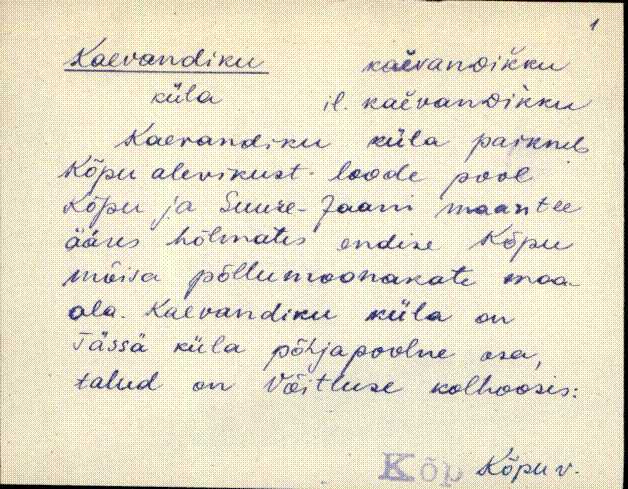 1
Kaevandiku kaevandikku
küla il. kaevandikku
Kaevandiku küla paikneb
Kõpu alevikust loode pool
Kõpu ja Suure-Jaani maantee
ääres hõlmates endise Kõpu
mõisa põllumoonakate maa-
ala. Kaevandiku küla on
Tässä küla põhjapoolne osa,
talud on Võitluse kolhoosis:
Kõp Kõpu v.